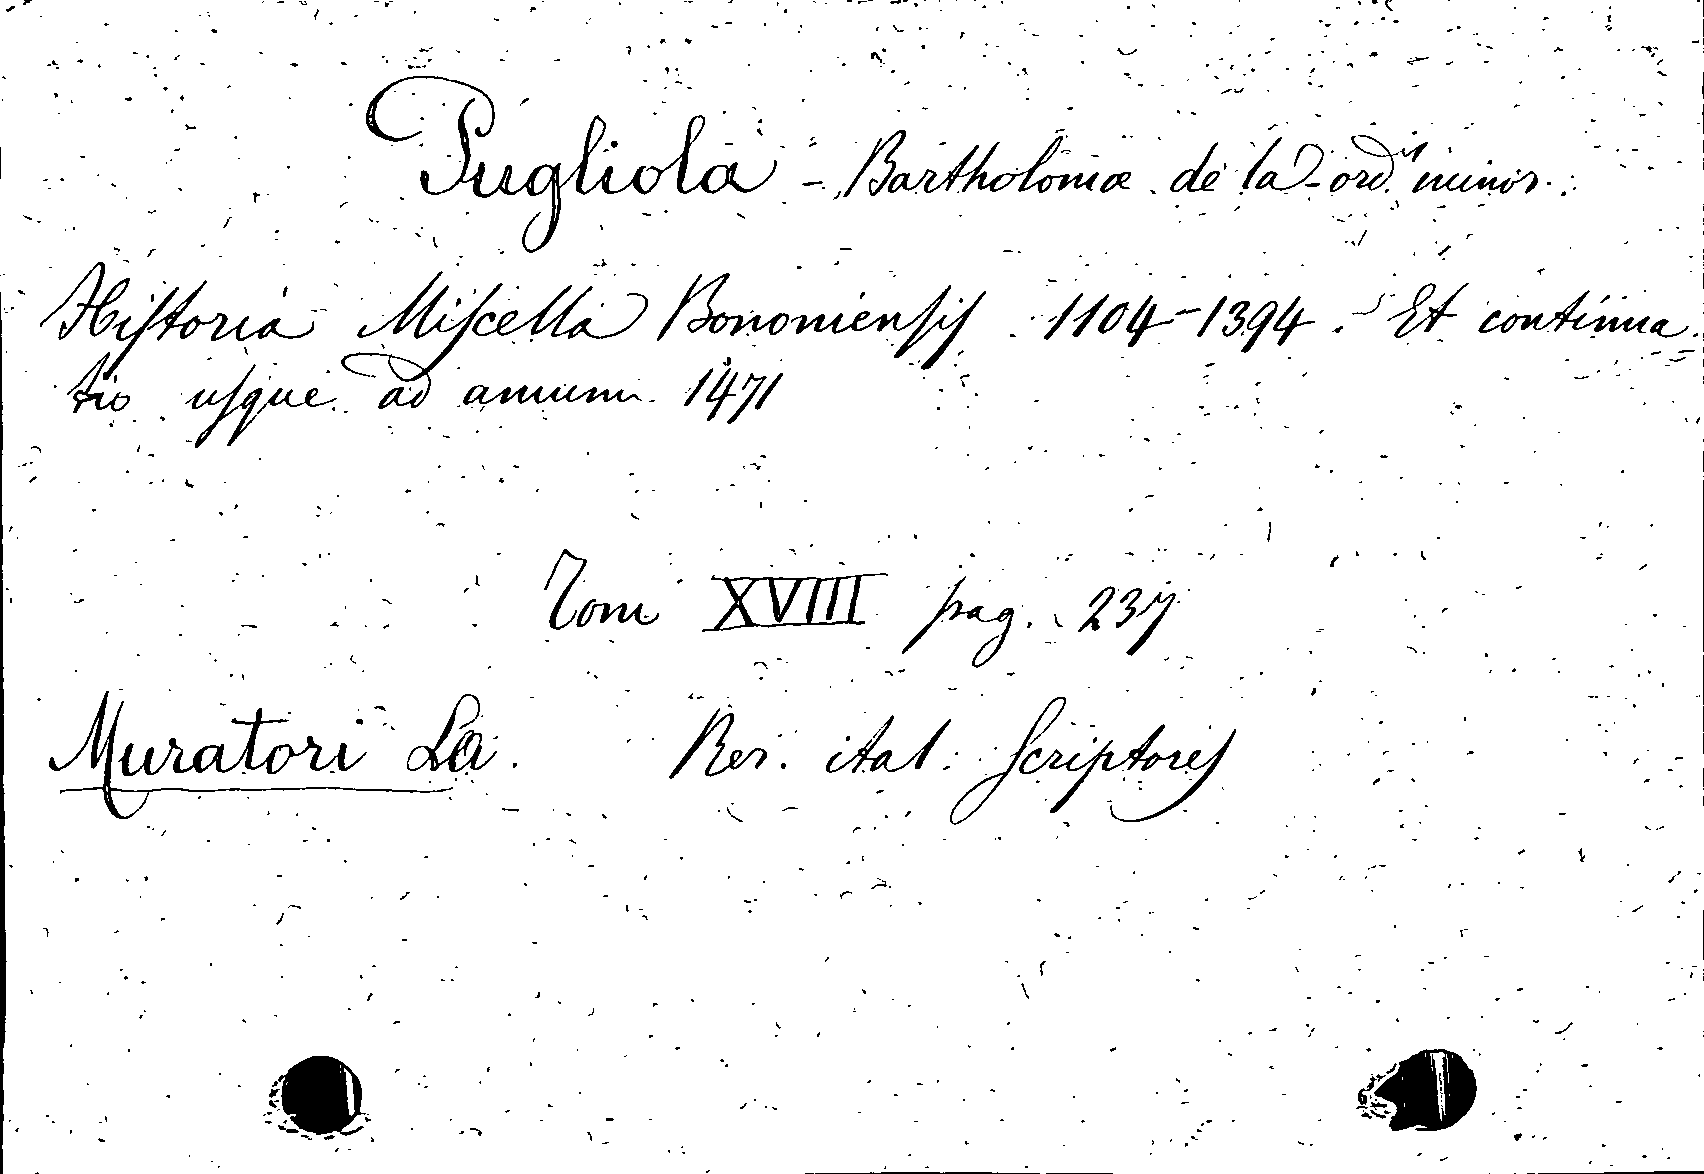 Pugliola - Bartholomæ de la ord.is minor.
Hiſtoria Miſcella Bononienſis 1104-1394. Et continua
tio uſque ad annum 1471
Tom XVIII pag. 237
Muratori La. Rer. ital. Scriptores